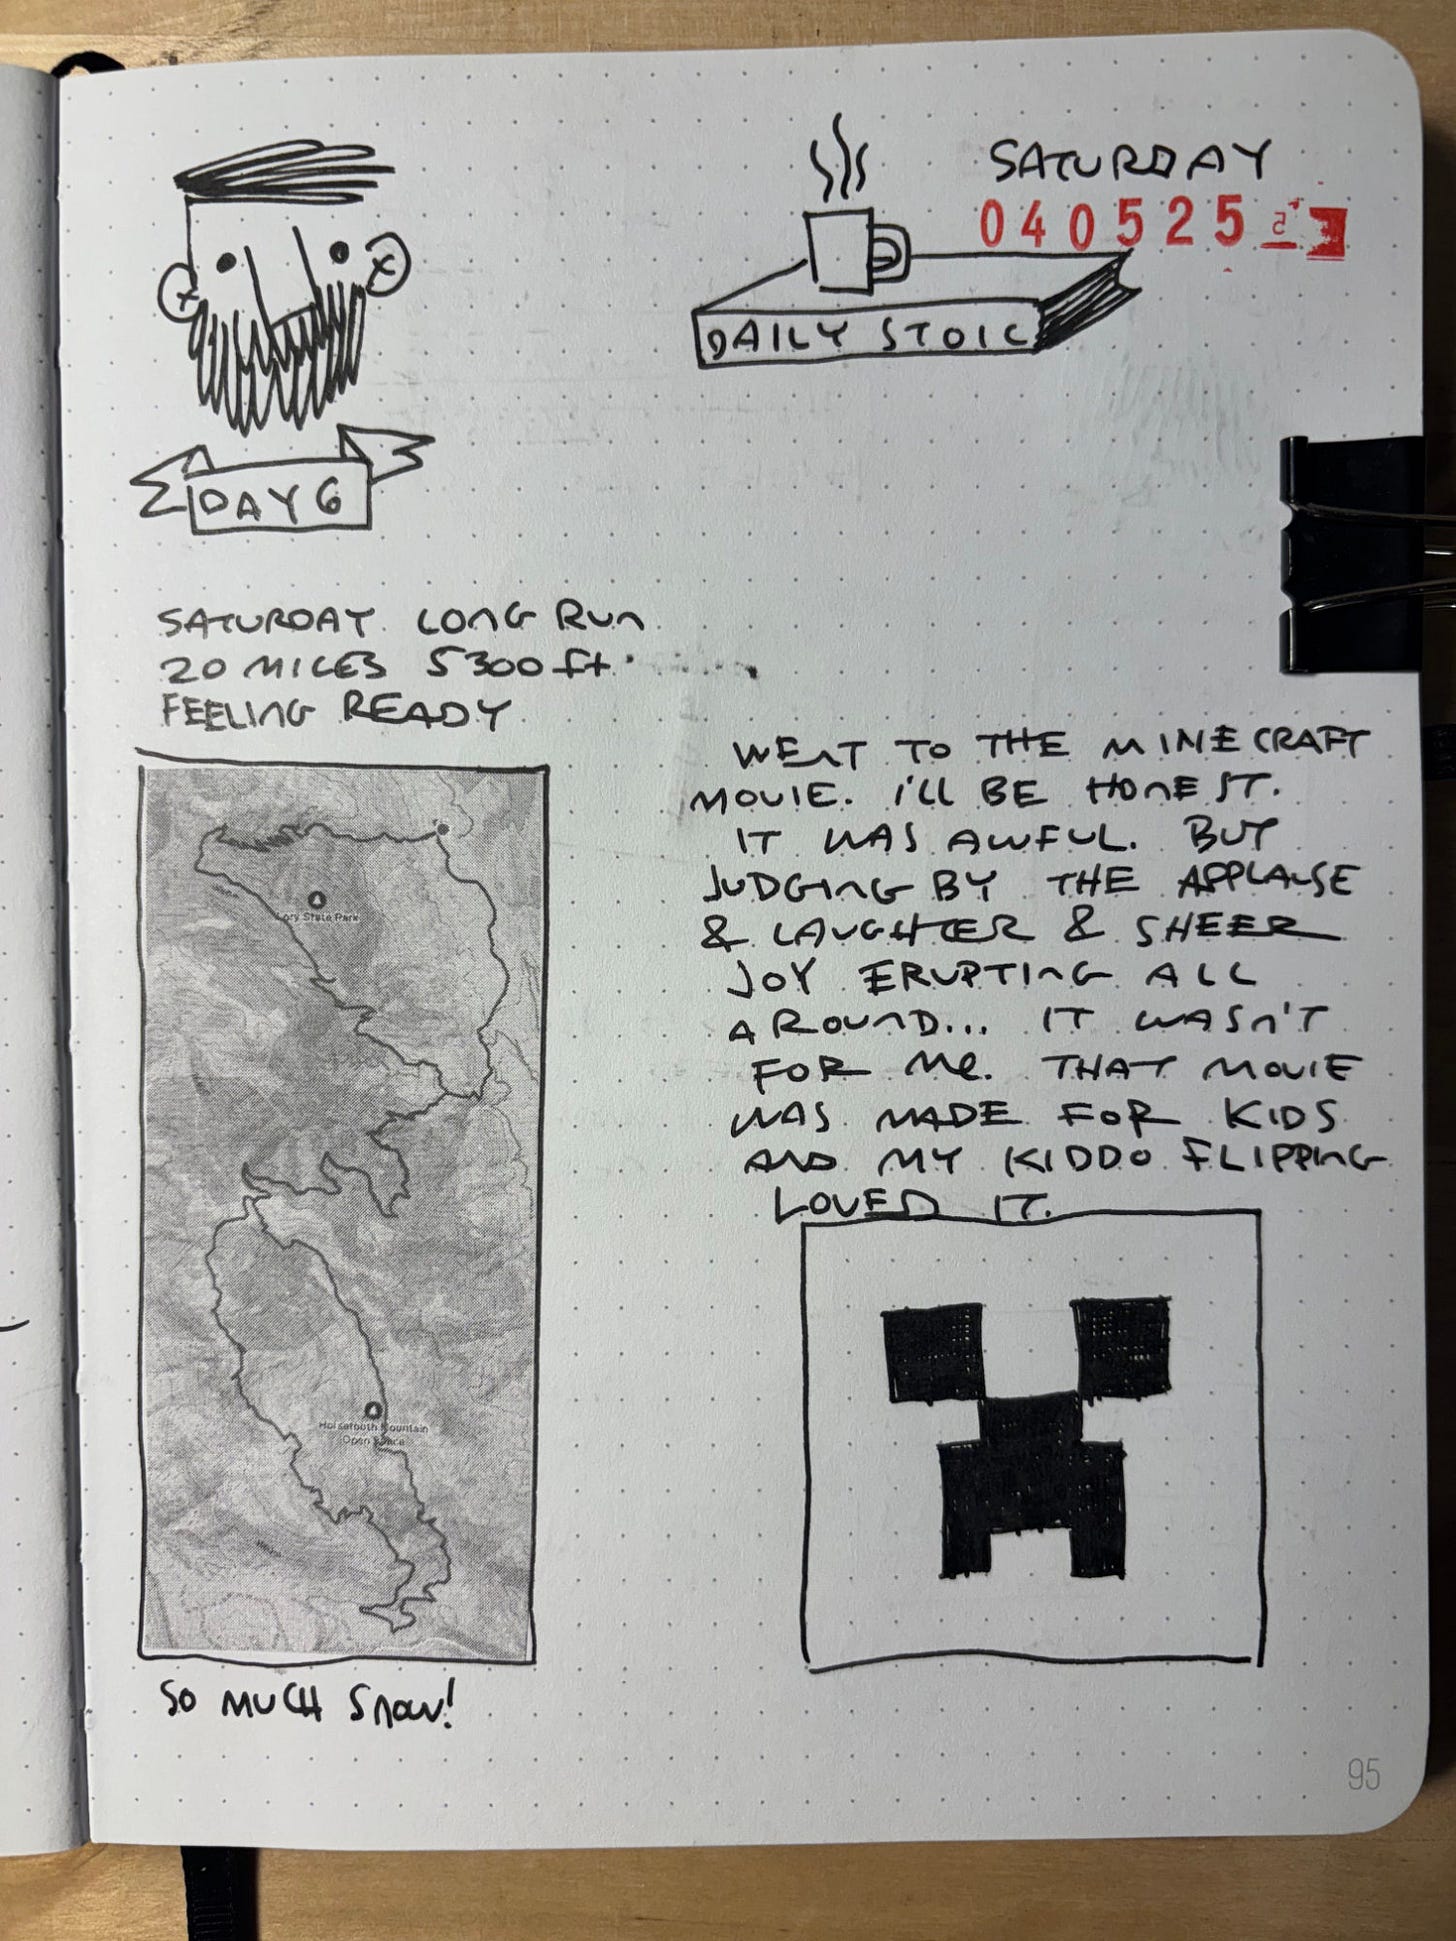 SATURDAY
040525
DAILY STOIC
DAY 6
SATURDAY LONG RUN
20 MILES 5300 ft.
FEELING READY
Lory State Park
Horsetooth Mountain
Open Space
SO MUCH SNOW!
WENT TO THE MINECRAFT
MOVIE. I'LL BE HONEST.
IT WAS AWFUL. BUT
JUDGING BY THE APPLAUSE
& LAUGHTER & SHEER
JOY ERUPTING ALL
AROUND... IT WASN'T
FOR ME. THAT MOVIE
WAS MADE FOR KIDS
AND MY KIDDO FLIPPING
LOVED IT.
95